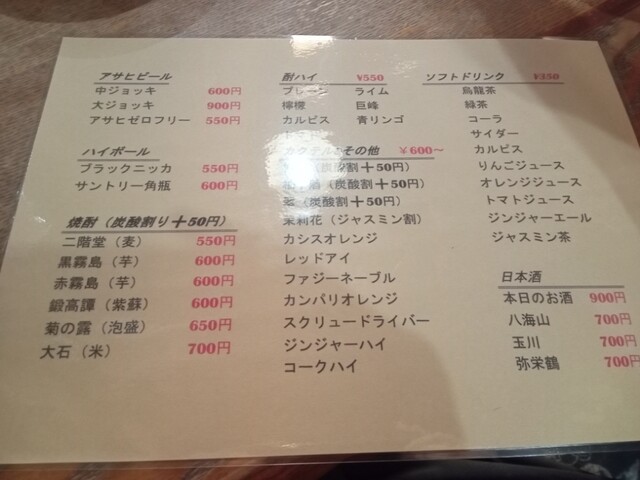 アサヒビール
中ジョッキ 600円
大ジョッキ 900円
アサヒゼロフリー 550円
ハイボール
ブラックニッカ 550円
サントリー角瓶 600円
焼酎（炭酸割り＋50円）
二階堂（麦） 550円
黒霧島（芋） 600円
赤霧島（芋） 600円
鍛高譚（紫蘇） 600円
菊の露（泡盛） 650円
大石（米） 700円
酎ハイ ¥550
プレーン ライム
檸檬 巨峰
カルピス 青リンゴ
カクテル・その他 ￥600～
（炭酸割＋50円）
（炭酸割＋50円）
（炭酸割＋50円）
茉莉花（ジャスミン割）
カシスオレンジ
レッドアイ
ファジーネーブル
カンパリオレンジ
スクリュードライバー
ジンジャーハイ
コークハイ
ソフトドリンク ¥350
烏龍茶
緑茶
コーラ
サイダー
カルピス
りんごジュース
オレンジジュース
トマトジュース
ジンジャーエール
ジャスミン茶
日本酒
本日のお酒 900円
八海山 700円
玉川 700円
弥栄鶴 700円